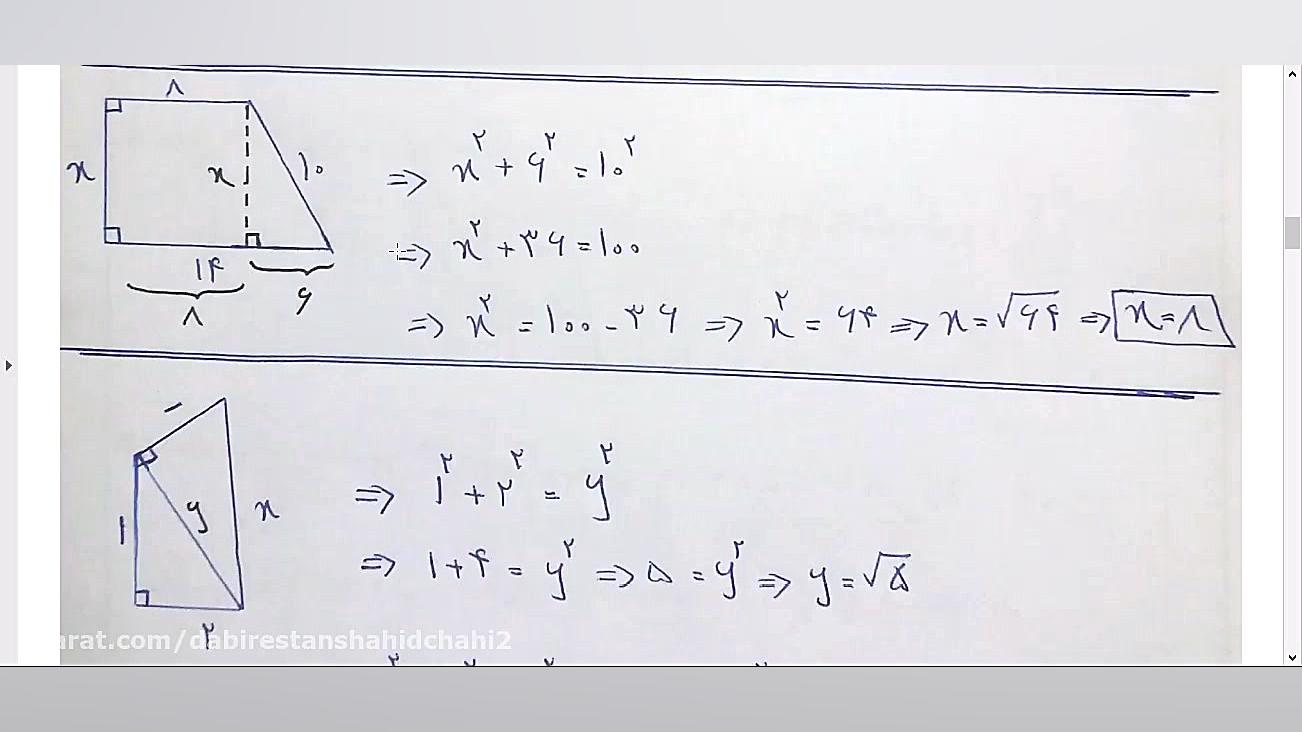 ۸
x
x
۱۰
۱۴
۸
۶
⇒ x² + ۶² = ۱۰²
⇒ x² + ۳۶ = ۱۰۰
⇒ x² = ۱۰۰ - ۳۶ ⇒ x² = ۶۴ ⇒ x = √۶۴ ⇒ x = ۸
۱
۱
y
x
۲
⇒ ۱² + ۲² = y²
⇒ ۱ + ۴ = y² ⇒ ۵ = y² ⇒ y = √۵
arat.com/dabirestanshahidchahi2